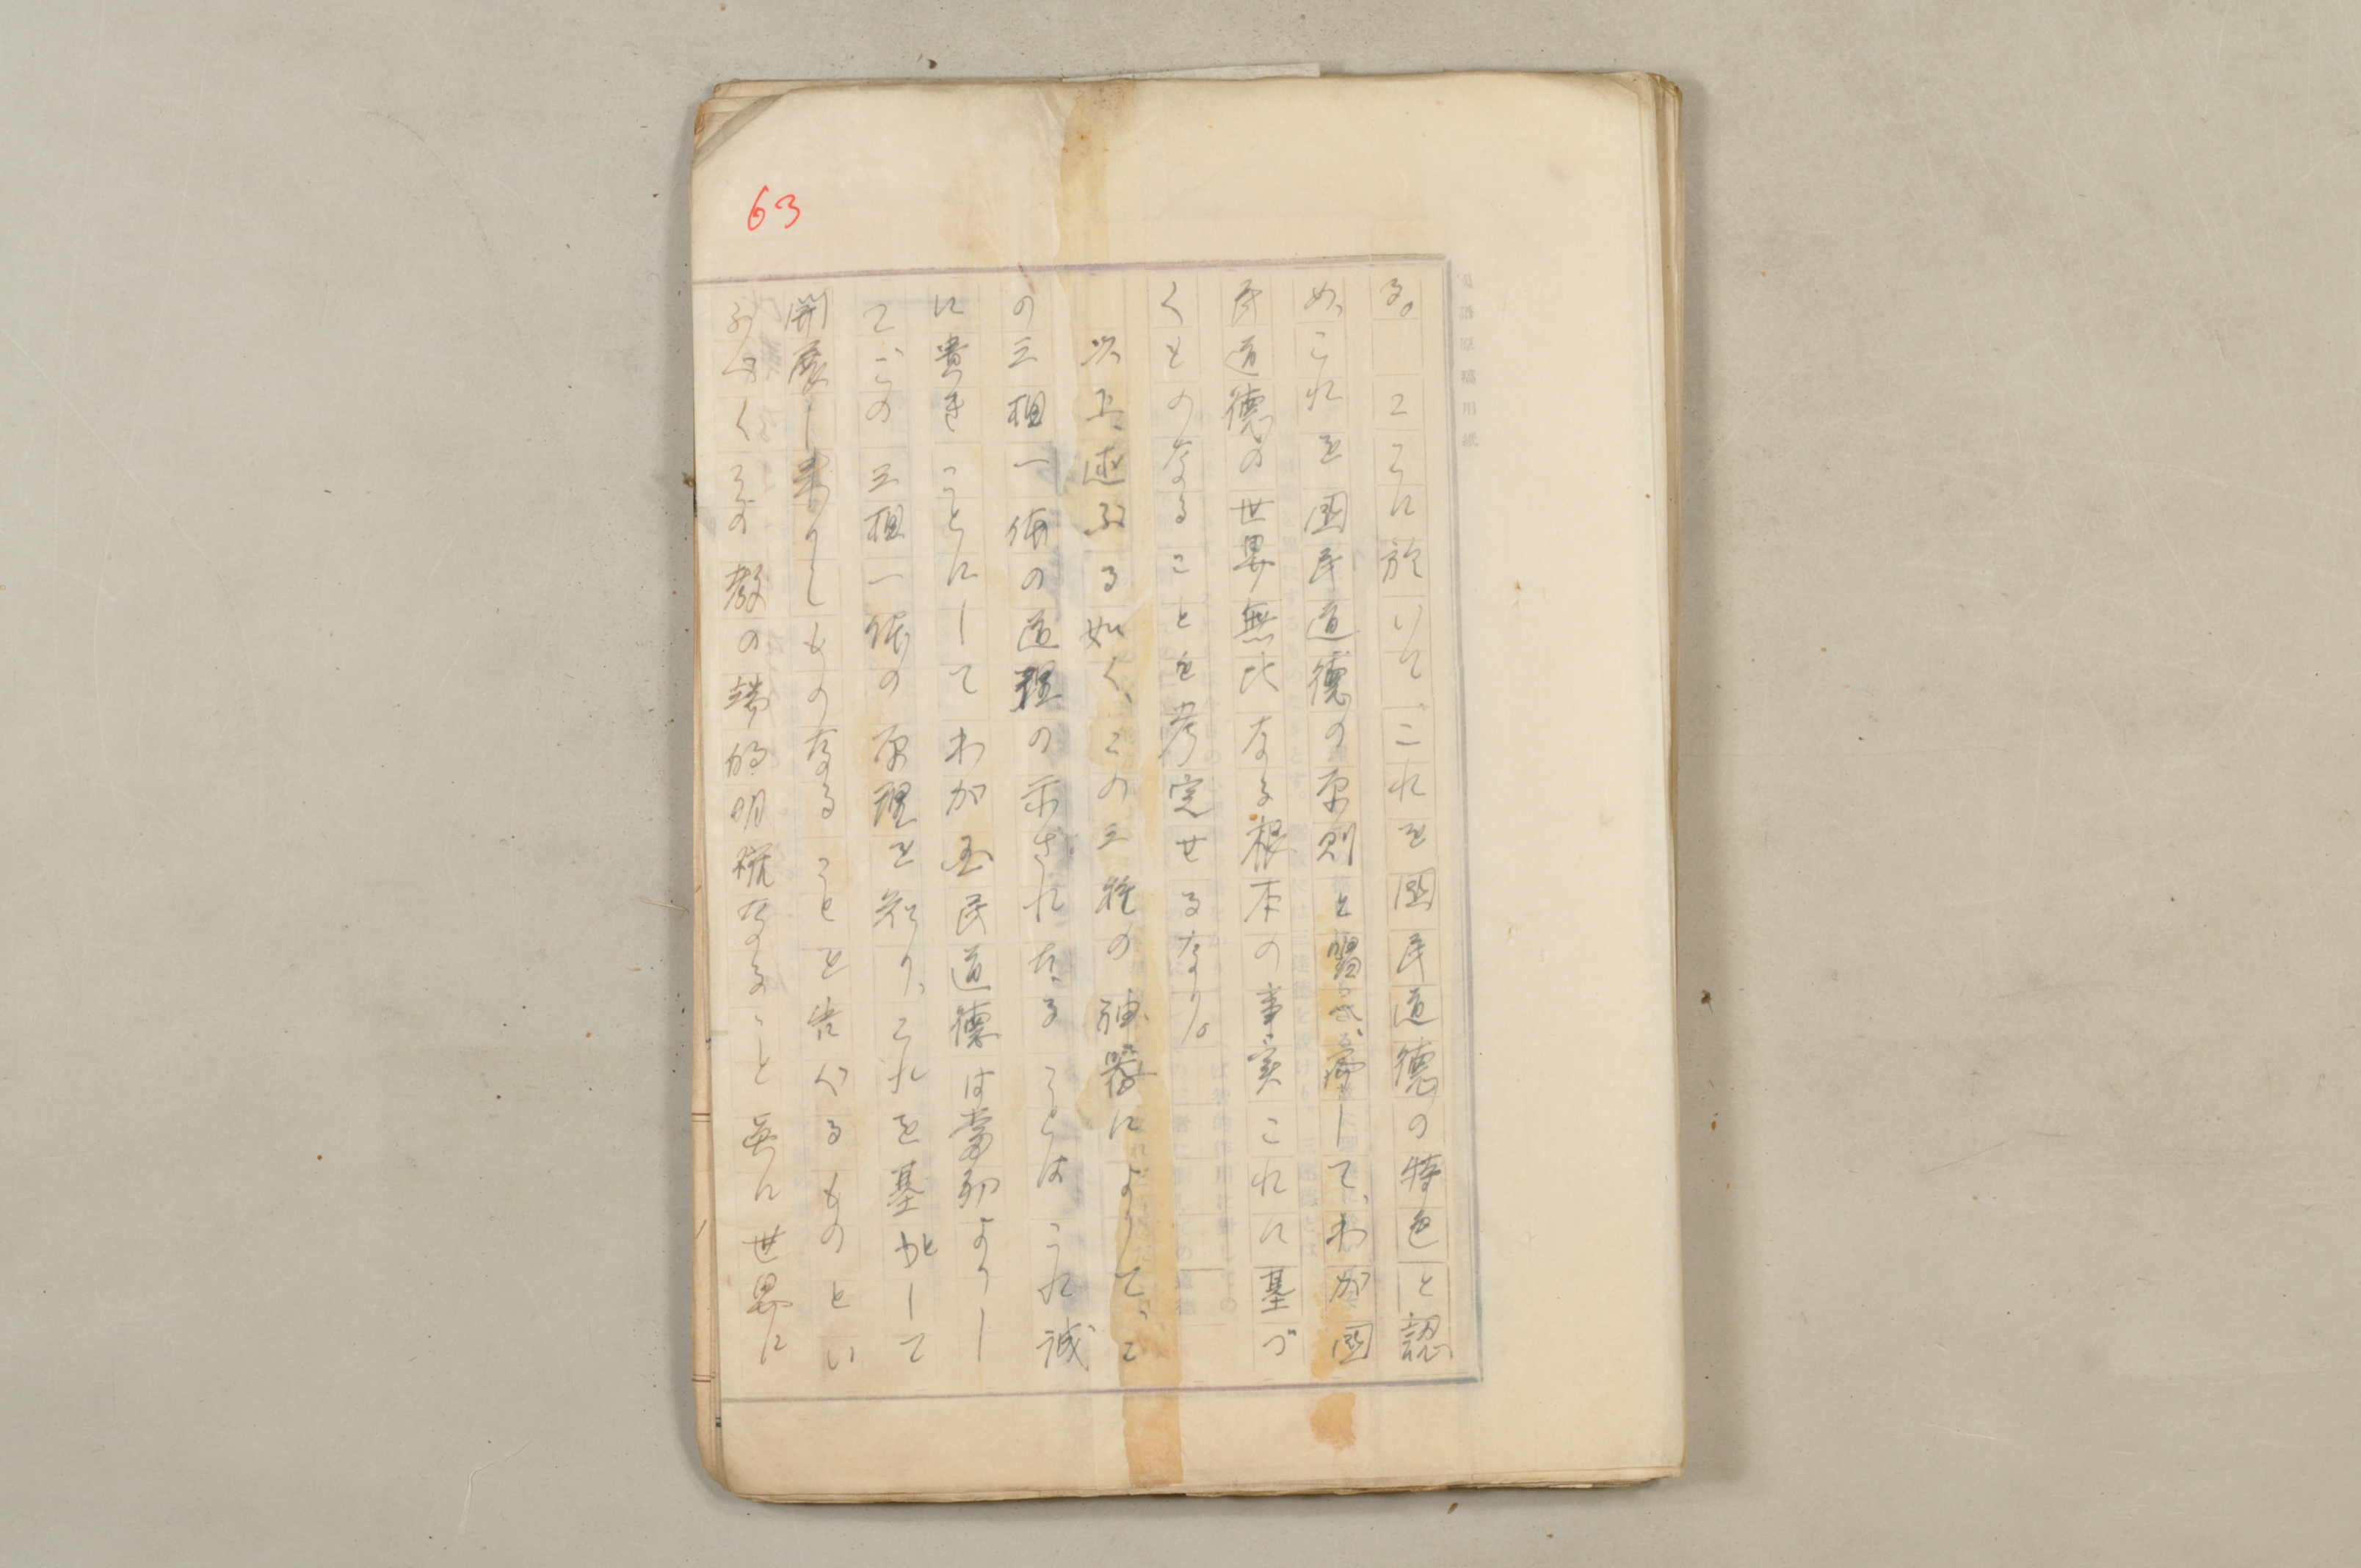 63
国語原稿用紙
る。ここに於いて、これを國民道徳の特色と認
め、これを國民道徳の原則と し而して、わが國
民道徳の世界無比なる根本の事実これに基づ
くものなることを考定せるなり。
以上述ぶる如く、この三種の神器によりて、こ
の三相一体の道理の示されたることはこれ誠
に貴きことにしてわが国民道徳は当初よりし
て、この三相一体の原理を祀り、これを基 として
開展し来りしものなることを告ぐるものとい
ふべくその教の端的明確なること真に世界に